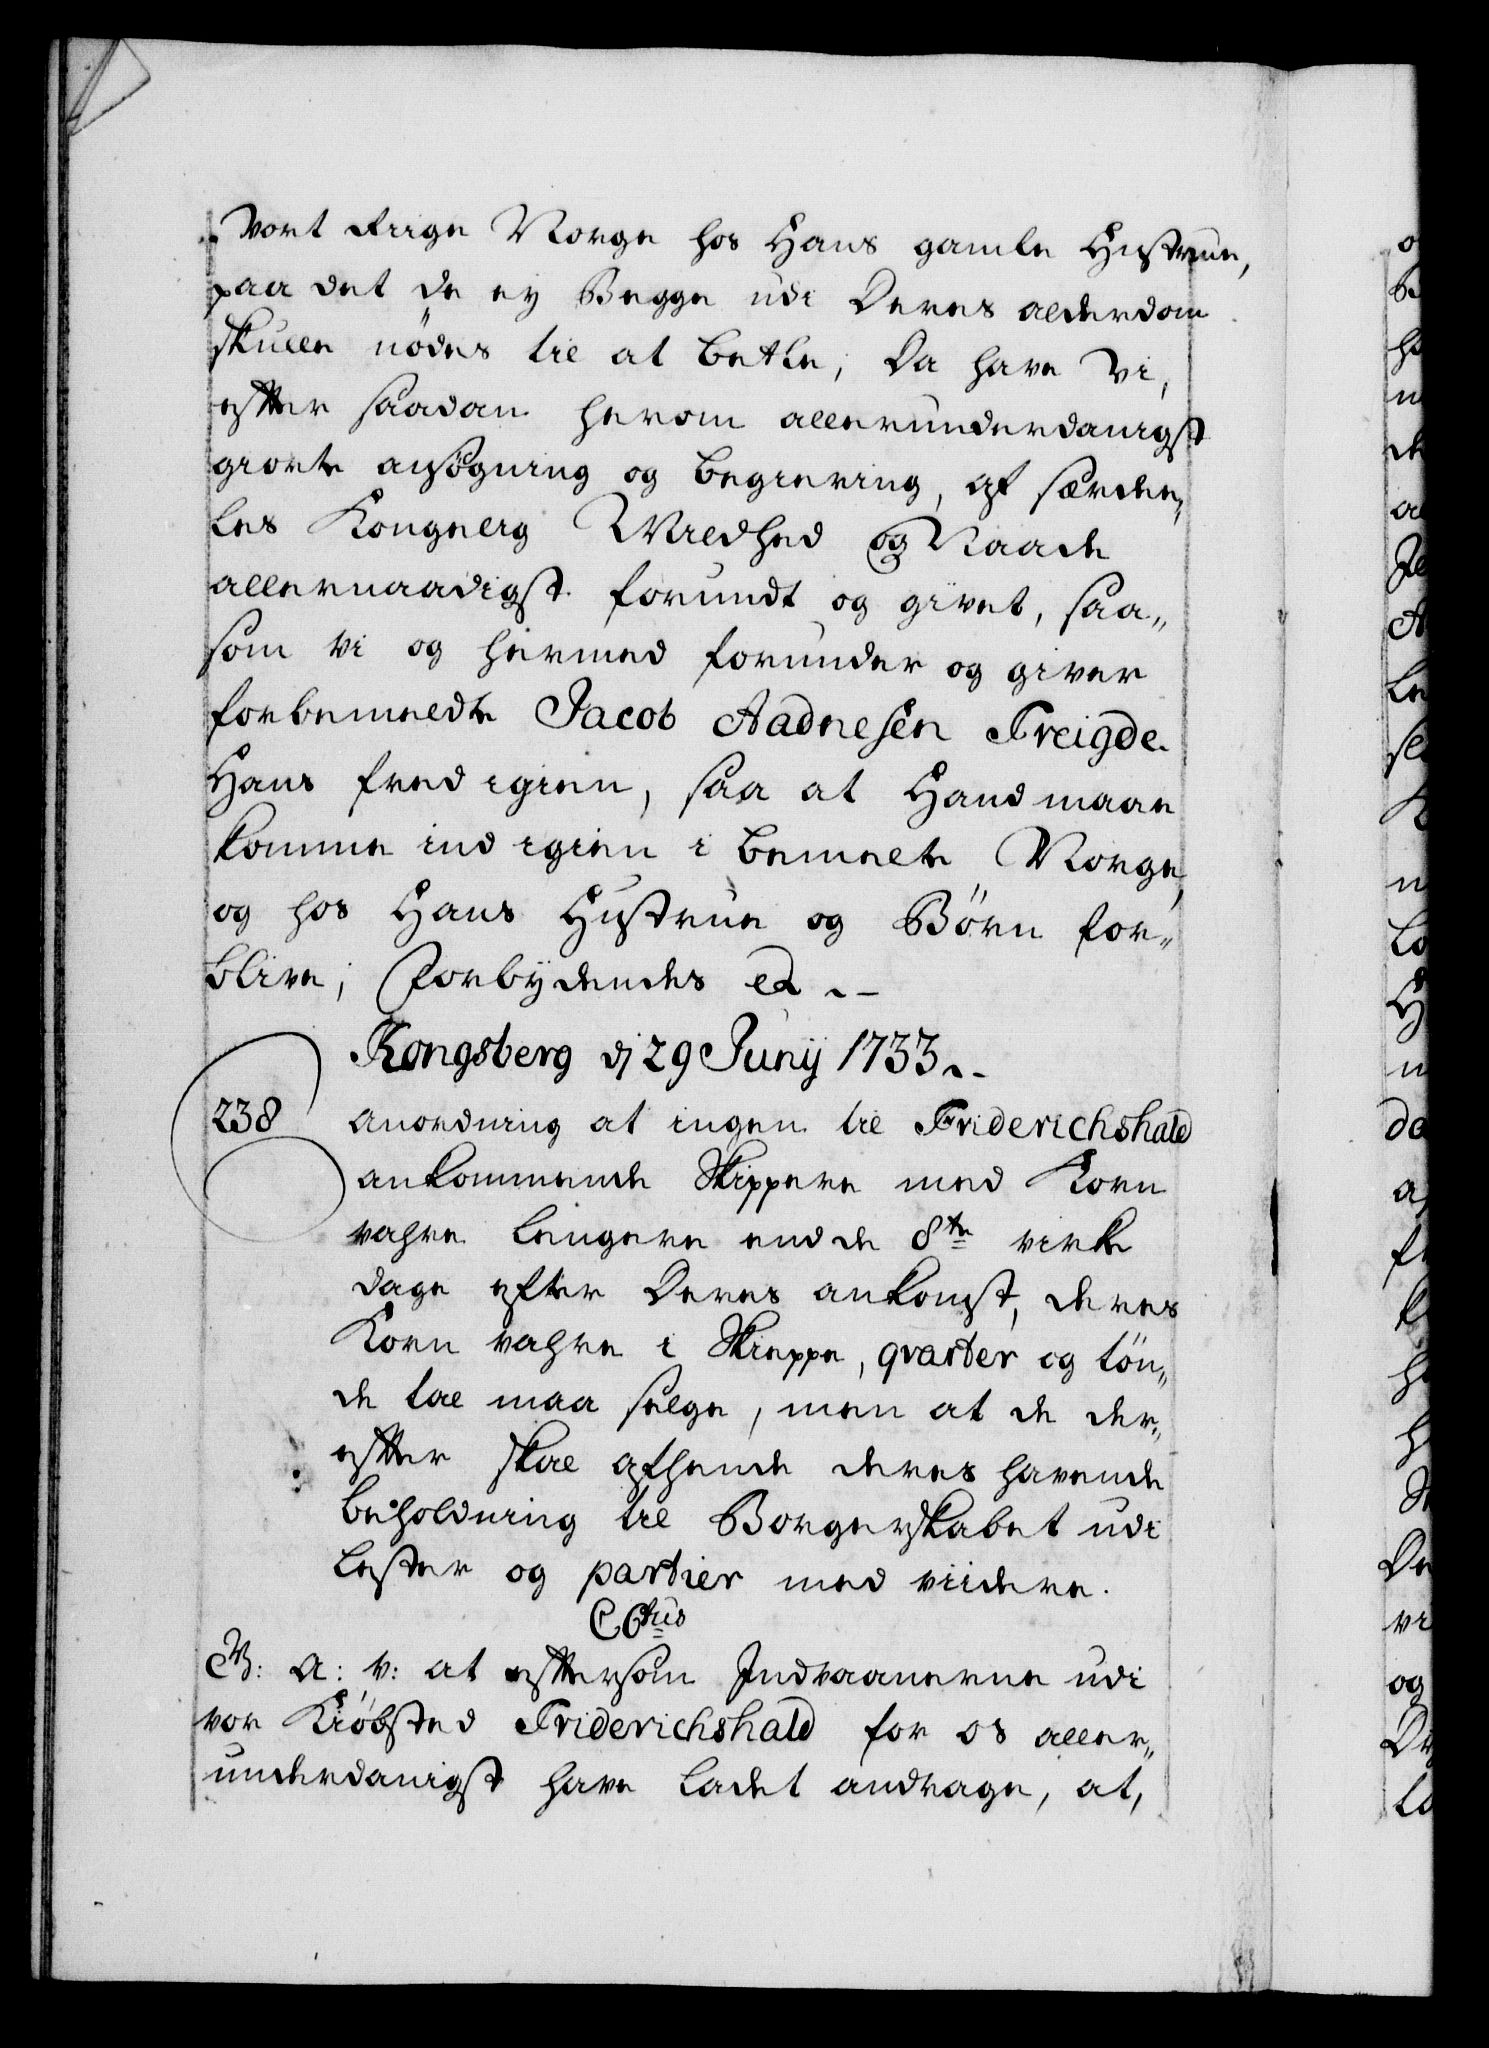 vort Riige Norge hos Hans gamle Hustrue,
paa det de ey Begge udi Deres alderdom
skulle nödes til at betle; Da have Vi,
efter saadan herom allerunderdanigst
giorte ansögning og begiering, af særde„
les Kongelig Mildhed og Naade
allernaadigst forundt og givet, saa„
som vi og hermed forunder og giver
forbemeldte Jacob Aadnesen Freigde.
Hans fred igien, saa at Hand maae
komme ind igien i bemelte Norge,
og hos Hans Hustrue og Börn for„
blive; Forbÿdendes &.
Kongsberg dj 29 Junij 1733.
238 Anordning at ingen til Friderichshald
ankommende Skippere med Korn
vahre lengere end de 8te virke
dage efter Deres ankomst, deres
Korn vahre i Skieppe, qvarter og tön„
de tal maa selge, men at de der„
efter skal afhende deres havende
beholdning til Borgerskabet udi
lester og partier med viidere.
C6tus
G: A: V: at eftersom Indvaanerne udi
vor Kiöbsted Friderichshald for os aller„
underdanigst have ladet andrage, at,